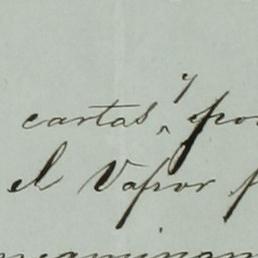 cartas, y po
el Vapor